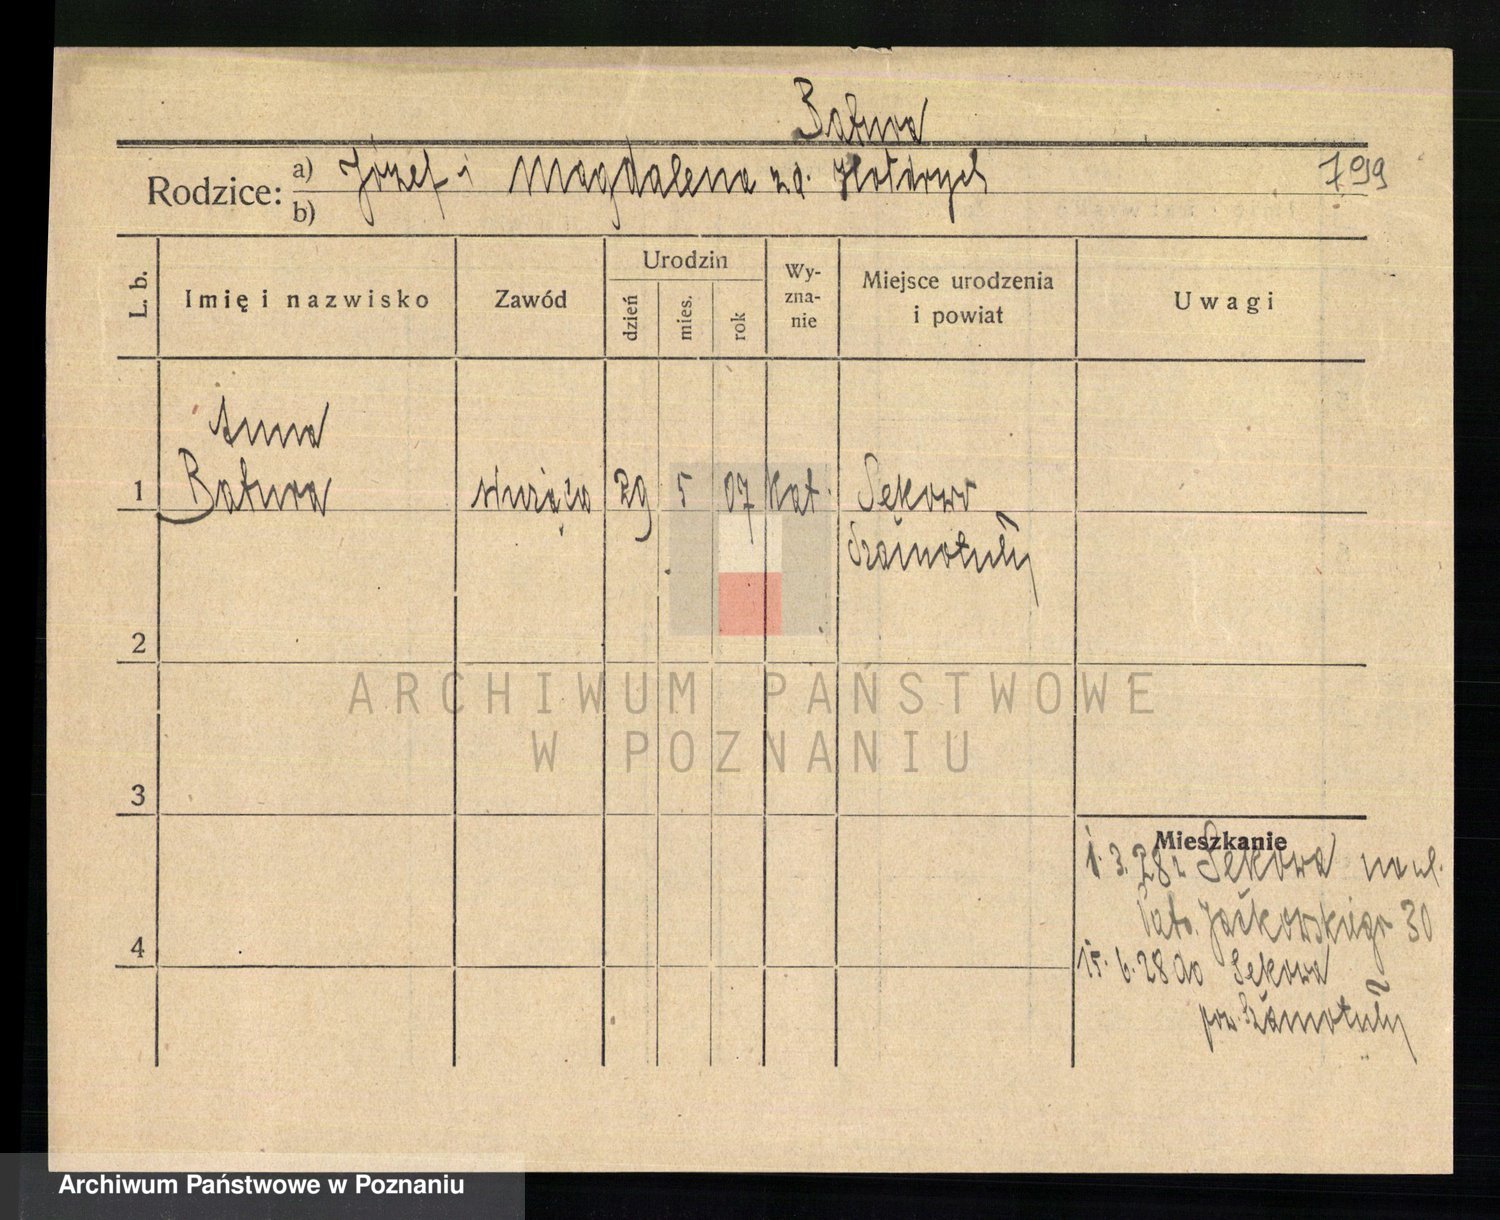 Batura
Rodzice: a) Józef i Magdalena
b)
799
L. b.
Imię i nazwisko
Zawód
Urodzin
dzień
mies.
rok
Wy-
zna-
nie
Miejsce urodzenia
i powiat
Uwagi
Anna
1 Batura służąca 29 5 07 kat. Sękowo
Szamotuły
2
3
4
Mieszkanie
1.3.28 r Sękowa na ul.
Jackowskiego 30
15.6.28 do Sękowa
pow. Szamotuły
ARCHIWUM PAŃSTWOWE
W POZNANIU
Archiwum Państwowe w Poznaniu